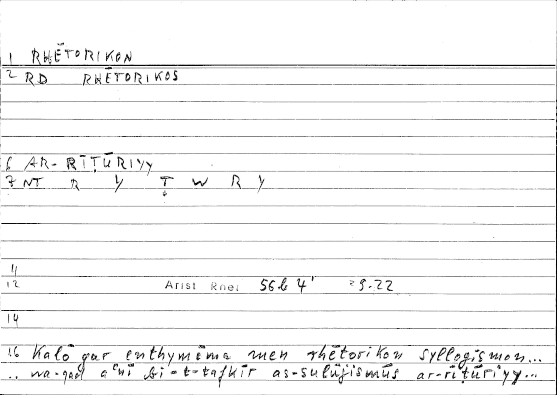 1 RHĒTORIKON
2 RD RHĒTORIKOS
6 AR-RĪṬŪRIYY
7 NT R Y Ṭ W R Y
11
12 Arist Rhet 56b 4' 29.22
14
16 Kalō gar enthymēma men rhētorikon syllogismon...
.. wa-qad aʿnī bi-t-tafkīr as-sulūjismūs ar-rīṭūriyy...